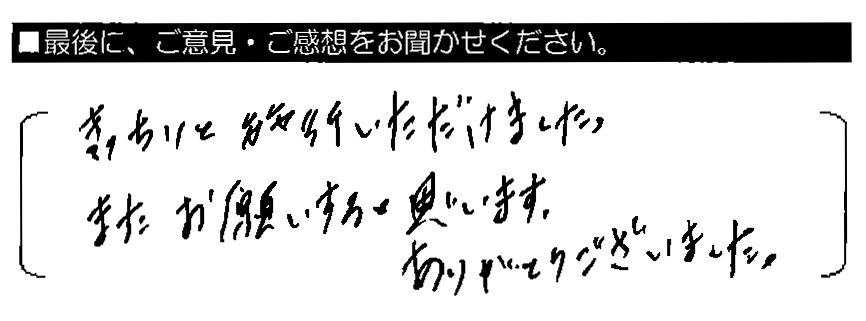 ■最後に、ご意見・ご感想をお聞かせください。
きっちりと施行いただけました。
また お願いすると思います。
ありがとうございました。